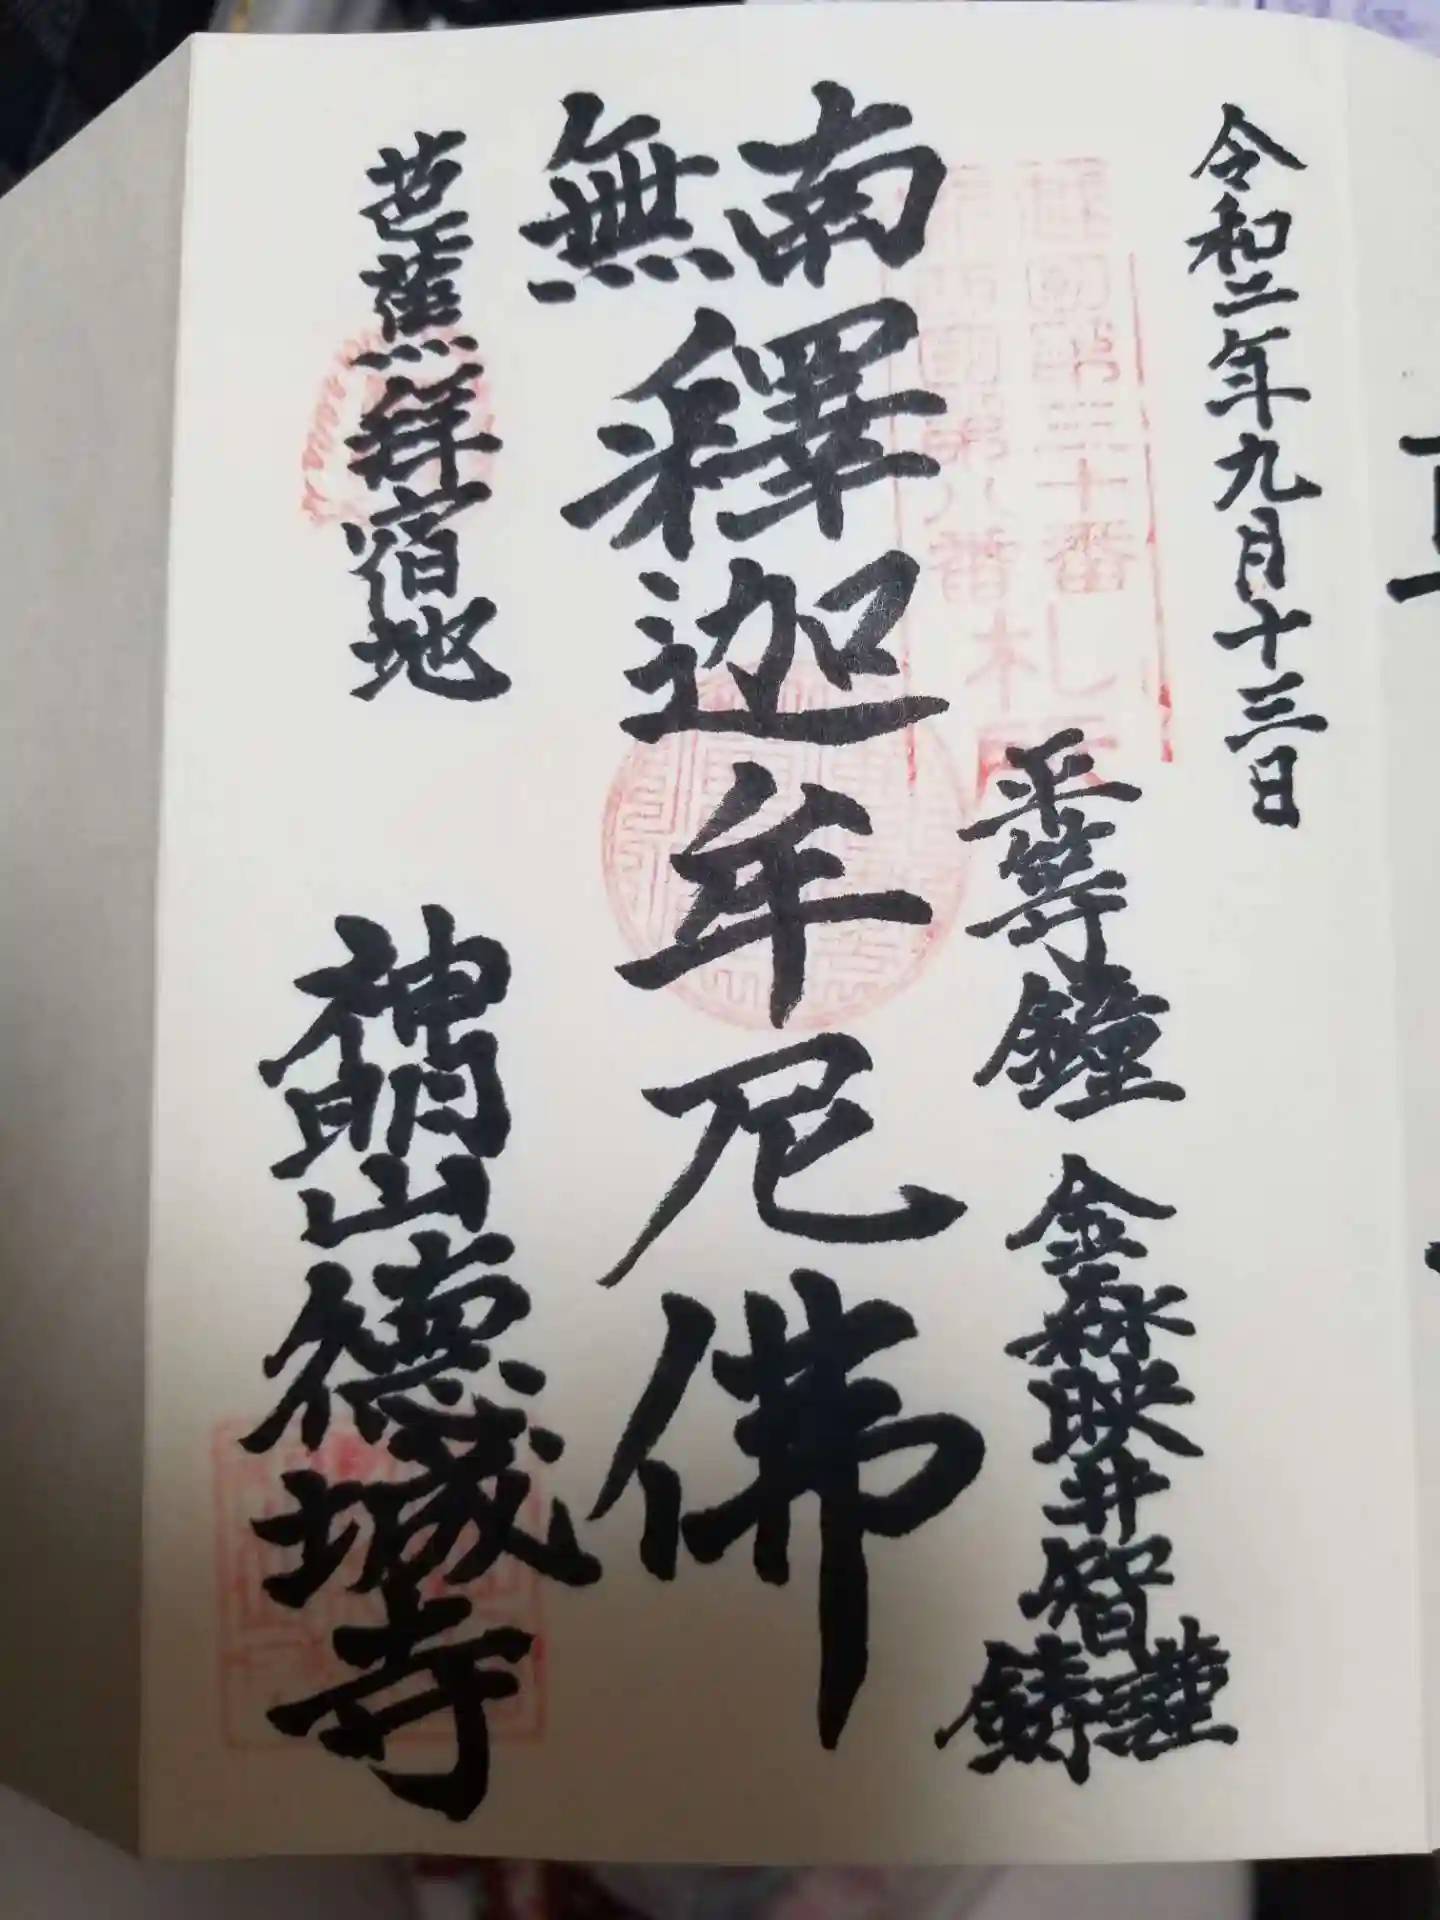 令和二年九月十三日
平等鐘 金森映井智謹鋳
南無釋迦牟尼佛
芭蕉祥宿地
神明山德城寺
國第三十番札
國第八番